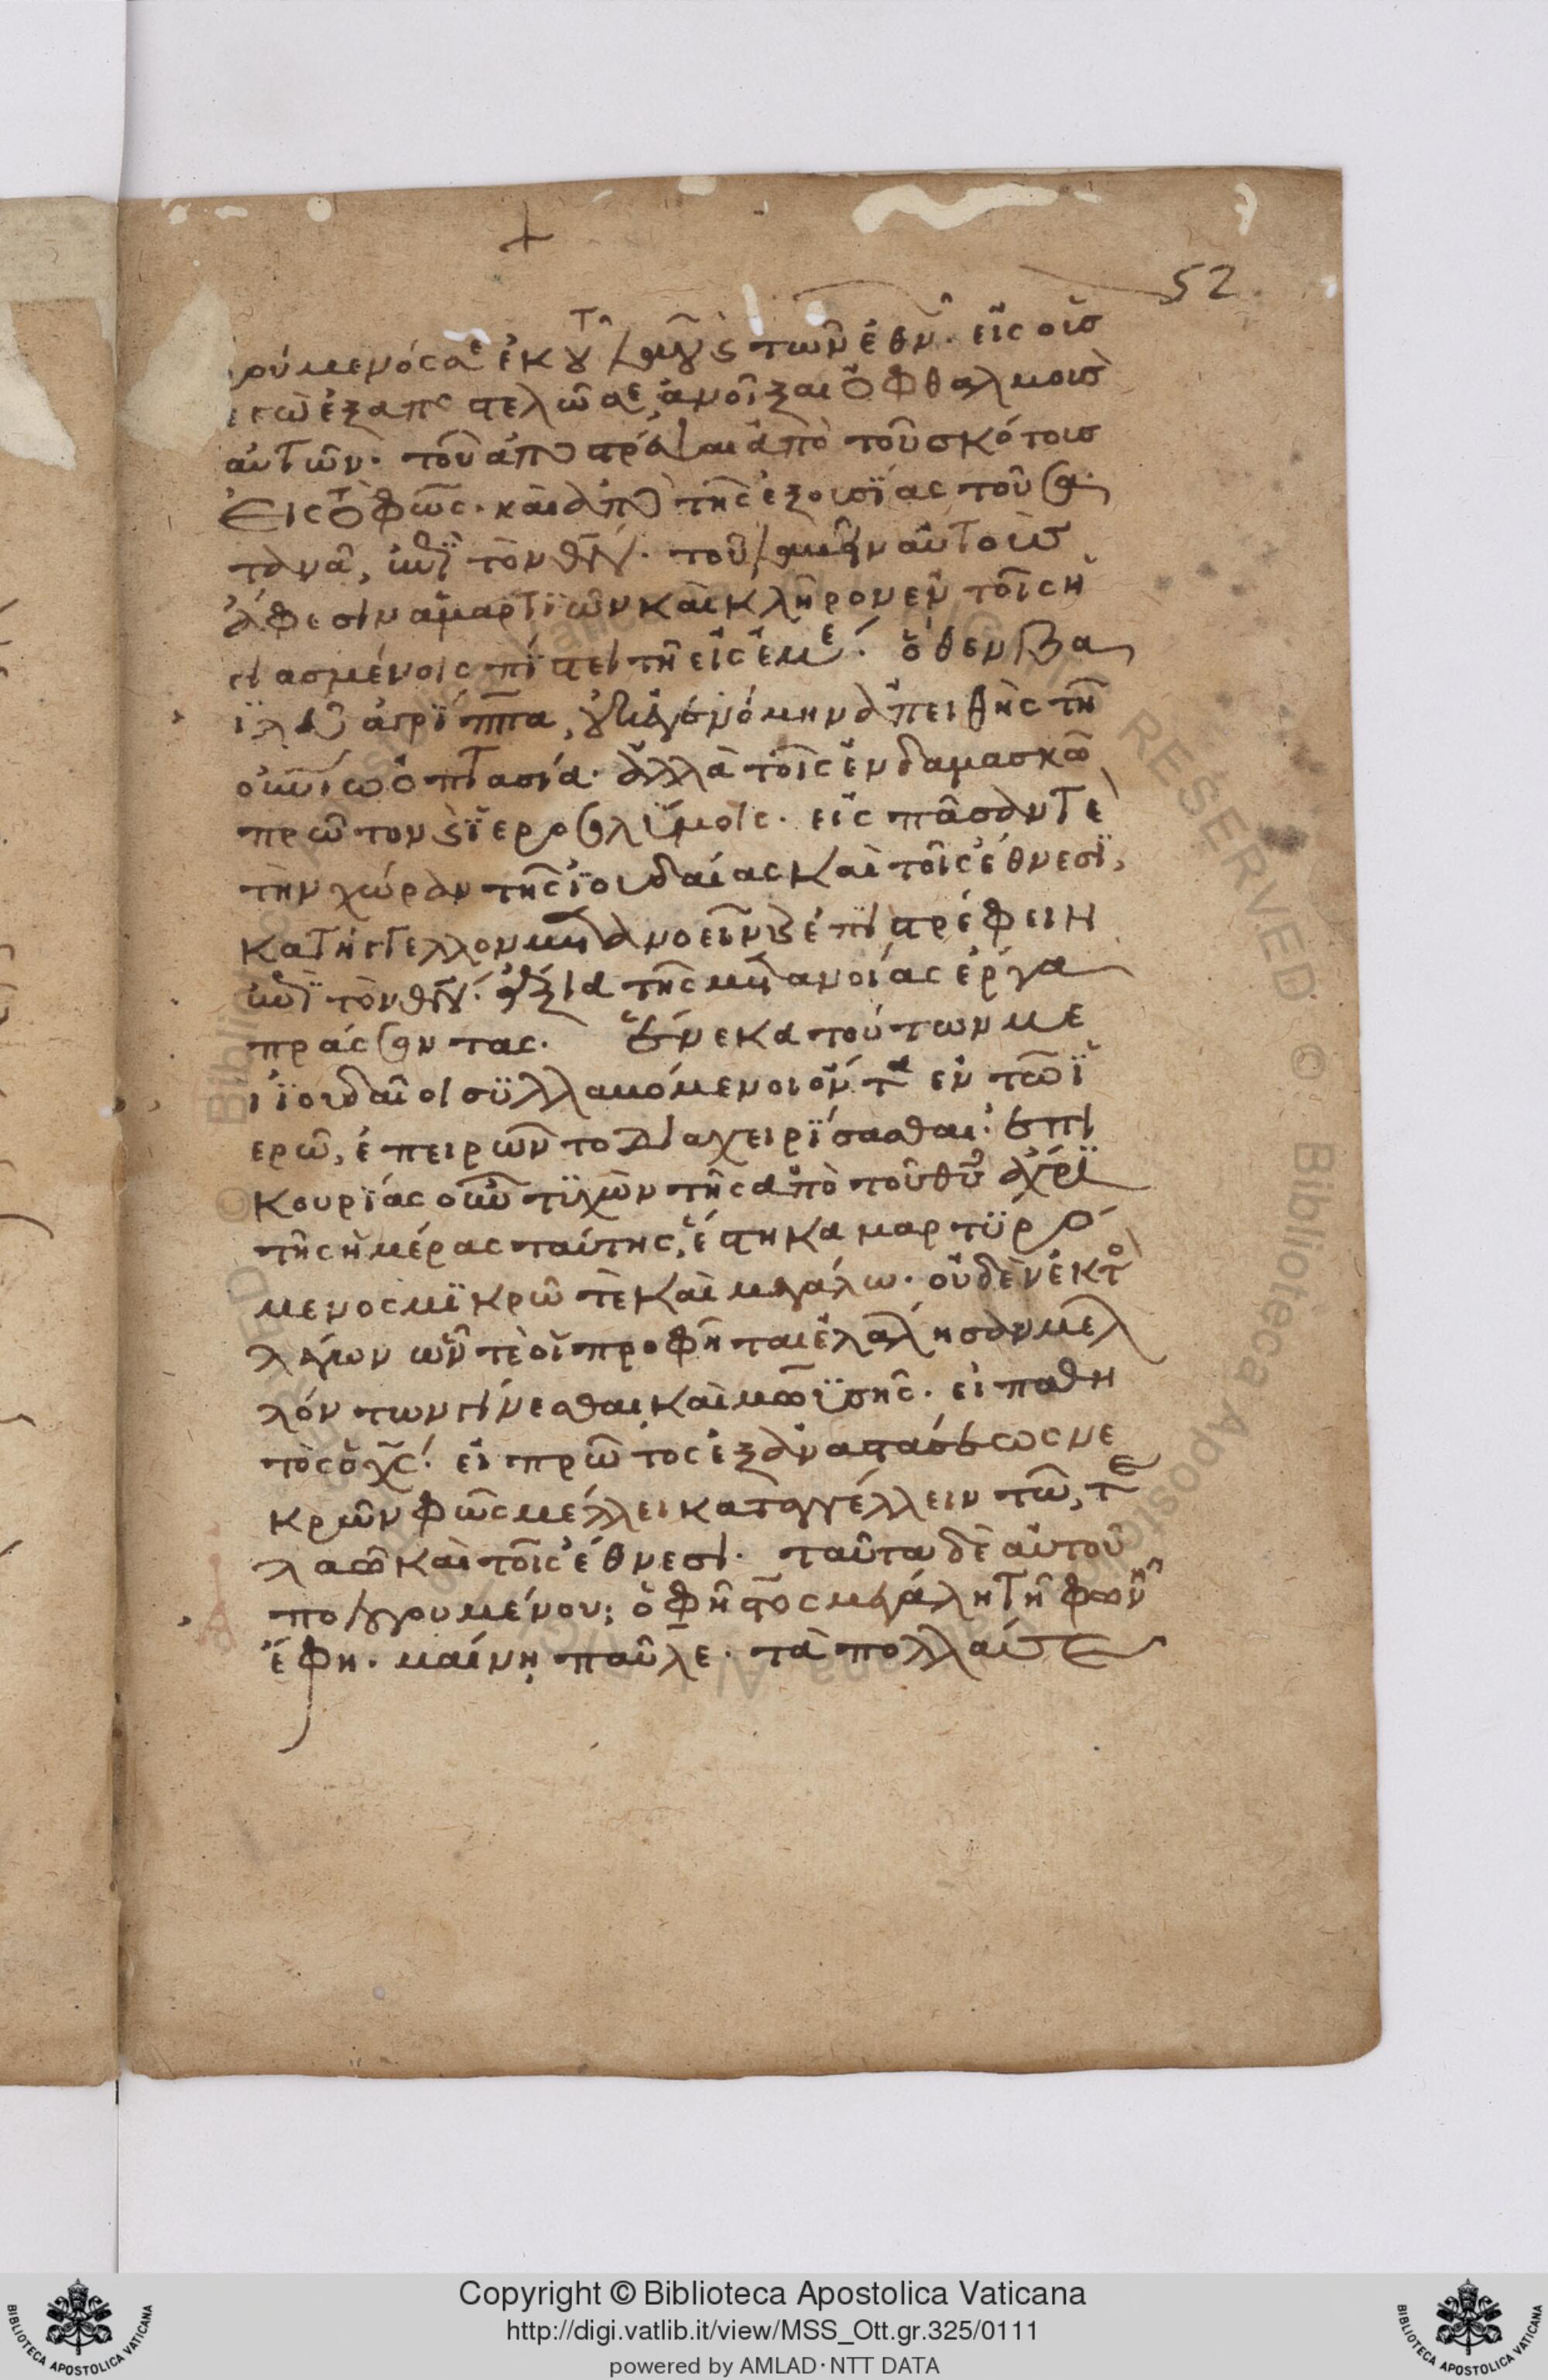 52
ρούμενός σε ἐκ τοῦ λαοῦ καὶ τῶν ἐθνῶν· εἰς οὓς
ἐγὼ ἐξαποστελῶ σε, ἀνοῖξαι ὀφθαλμοὺς
αὐτῶν· τοῦ ἀποστρέψαι ἀπὸ τοῦ σκότους
εἰς τὸ φῶς· καὶ ἀπὸ τῆς ἐξουσίας τοῦ σα
τανᾶ, ἐπὶ τὸν θν· τοῦ λαβεῖν αὐτοὺς
ἄφεσιν ἁμαρτιῶν καὶ κλῆρον ἐν τοῖς ἡ
γιασμένοις πίστει τῇ εἰς ἐμέ· ὅθεν βα
ϊλεῦ ἀγρίππα, οὐκ ἐγενόμην ἀπειθὴς τῇ
οὐνίω ὀπτασία· ἀλλὰ τοῖς ἐν δαμασκῶ
πρῶτον καὶ ἱεροσολύμοις· εἰς πᾶσάν τε
τὴν χώραν τῆς ἰουδαίας καὶ τοῖς ἔθνεσϊ,
κατήγγελλον μετανοεῖν καὶ ἐπιστρέφειν
ἐπὶ τὸν θν· ἄξια τῆς μετανοίας ἔργα
πράσσοντας· ἕνεκα τούτων με
ϊ ἰουδαῖοι συλλαβόμενοι ὄντα ἐν τῶ ϊ
ερῶ, ἐπειρῶντο διαχειρίσασθαι· ἐπι
κουρίας οὖν τυχὼν τῆς ἀπὸ τοῦ θυ ἄχρϊ
τῆς ἡμέρας ταύτης, ἕστηκα μαρτυρό
μενος μικρῶ τὲ καὶ μεγάλω· οὐδὲν ἐκτὸς
λέγων ὧν τὲ οἱ προφῆται ἐλάλησαν μελ
λόντων γίνεσθαι καὶ μωϋσῆς· εἰ παθη
τὸς ὁ χς· εἰ πρῶτος ἐξ ἀναστάσεως νε
κρῶν φῶς μέλλει καταγγέλλειν τῶ, τε
λαῶ καὶ τοῖς ἔθνεσι· ταῦτα δὲ αὐτοῦ
πολογουμένου; ὁ φῆστος μεγάλη τῆ φωνῆ
ἔφη· μαίνη παῦλε· τὰ πολλά σε
Copyright © Biblioteca Apostolica Vaticana
http://digi.vatlib.it/view/MSS_Ott.gr.325/0111
powered by AMLAD·NTT DATA